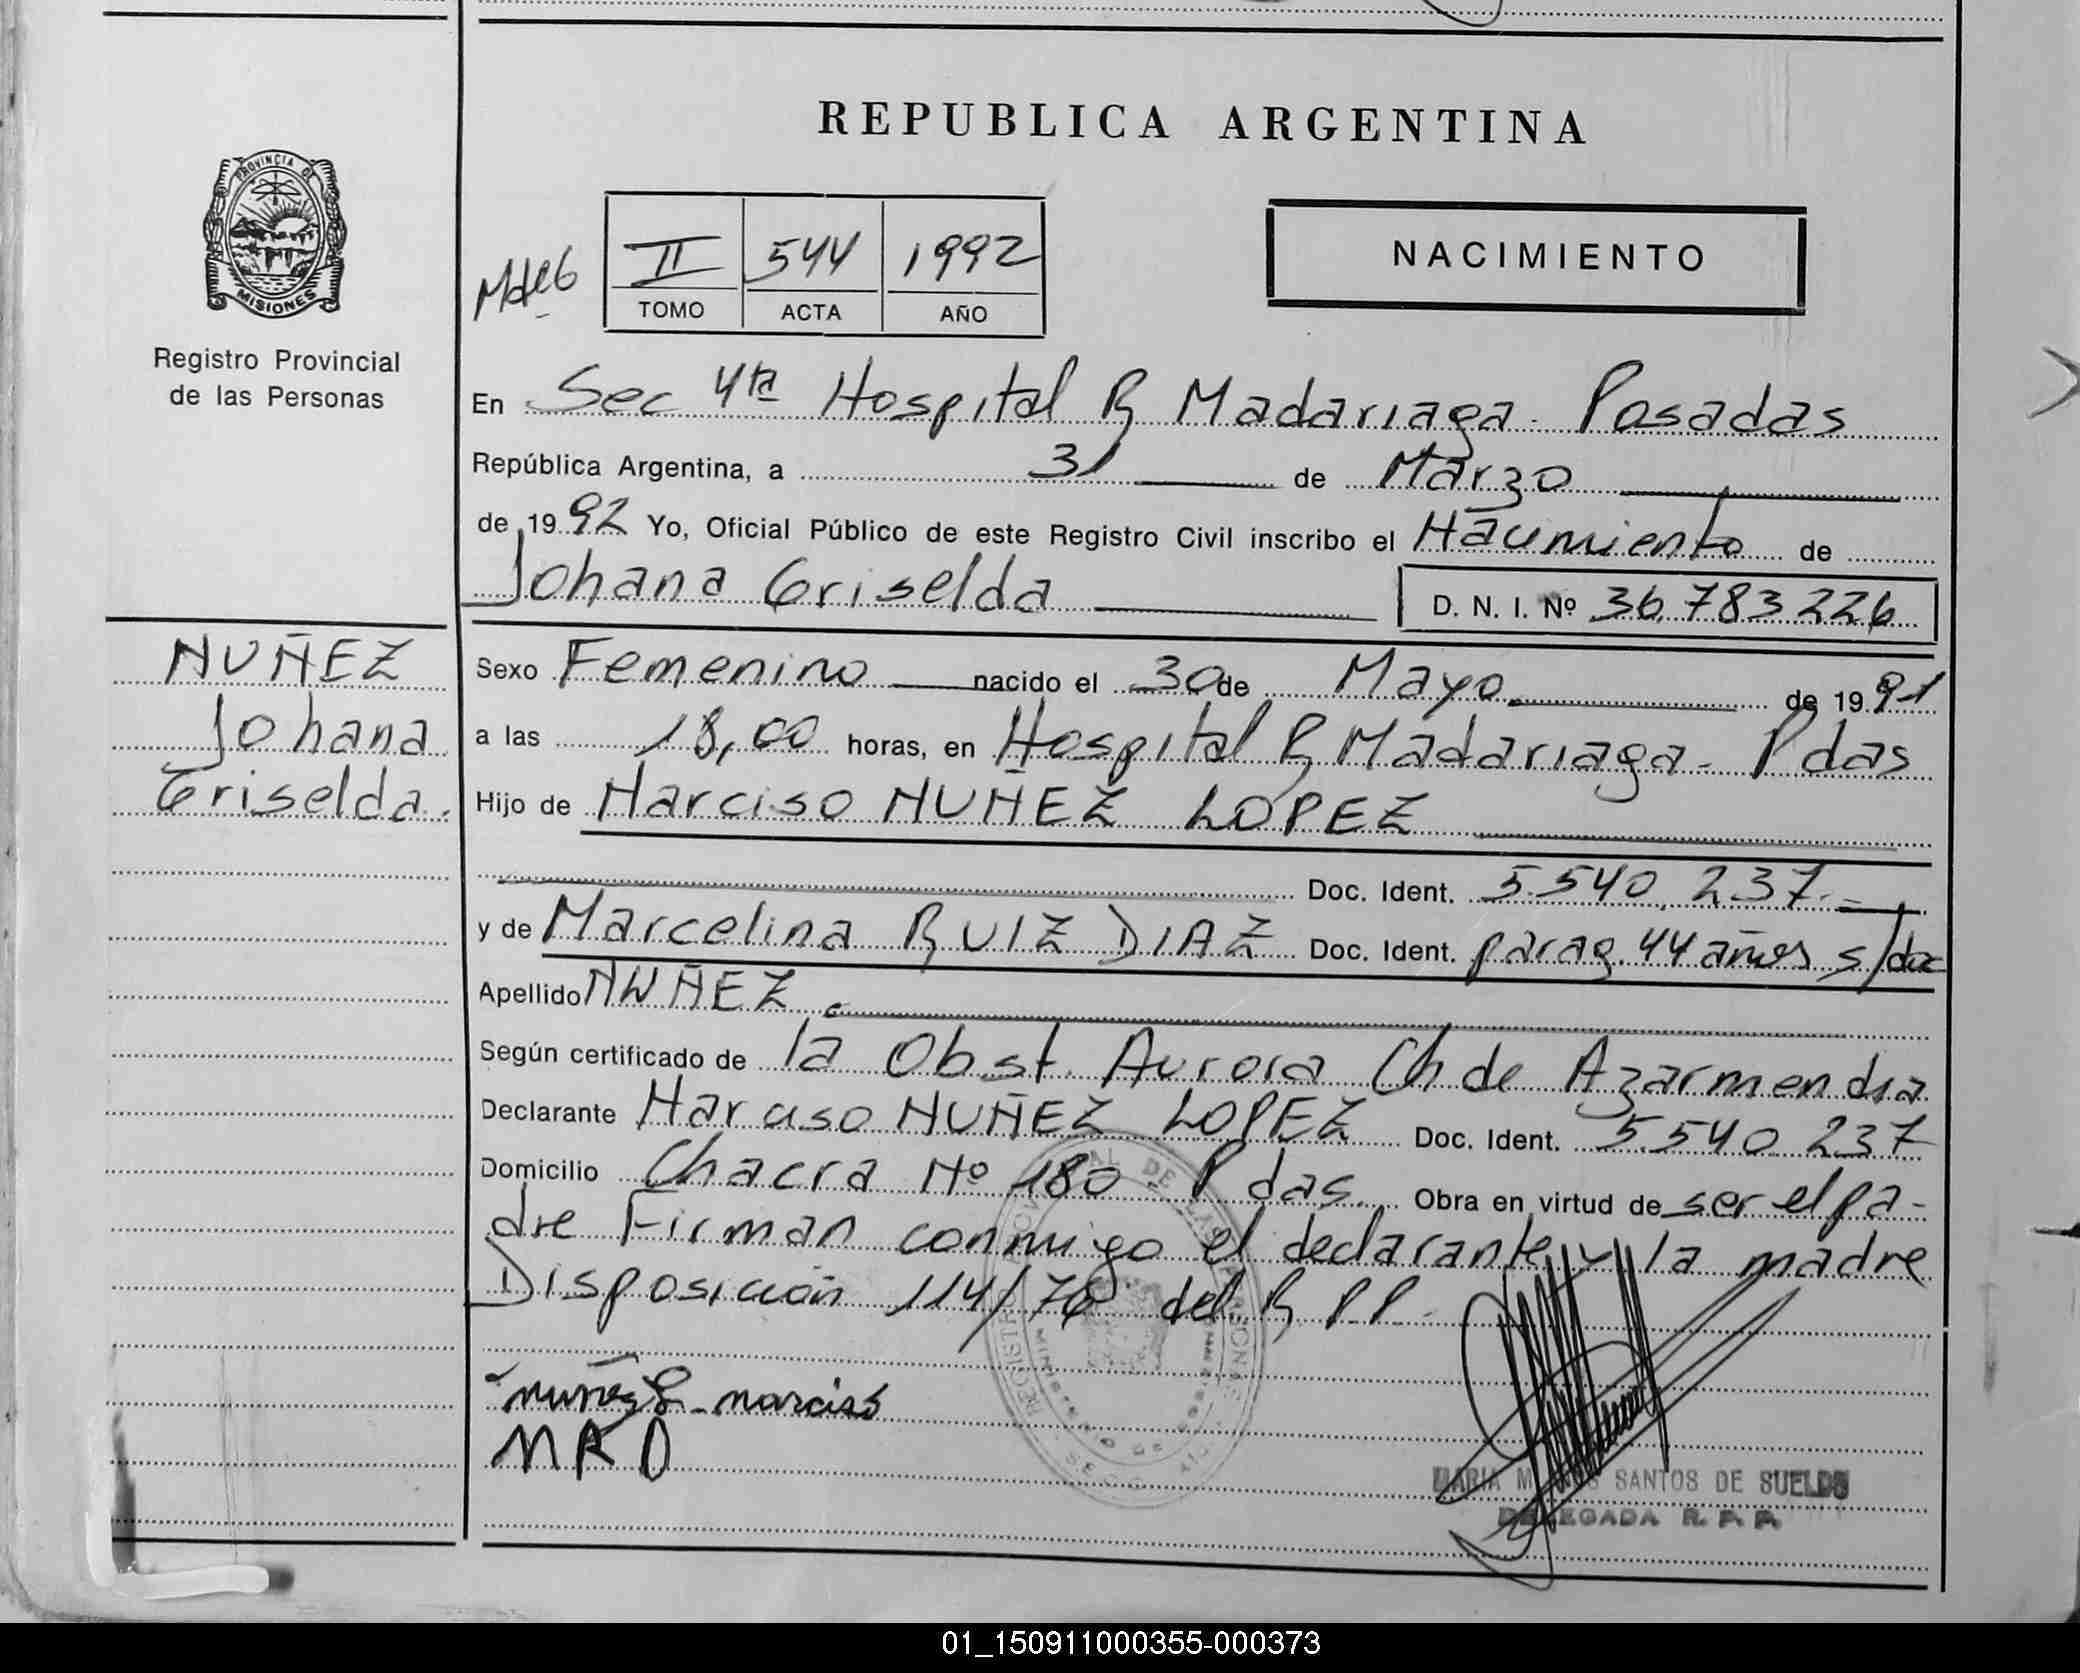 REPUBLICA ARGENTINA
PROVINCIA DE
MISIONES
Registro Provincial
de las Personas
II 544 1992
TOMO ACTA AÑO
NACIMIENTO
En Sec 4ta Hospital R Madariaga - Posadas
República Argentina, a 31 de Marzo
de 1992 Yo, Oficial Público de este Registro Civil inscribo el Nacimiento de
Johana Griselda D. N. I. Nº 36.783226
NUÑEZ
Johana
Griselda.
Sexo Femenino nacido el 30 de Mayo de 1991
a las 18,00 horas, en Hospital R Madariaga - Pdas
Hijo de Narciso NUÑEZ LOPEZ
Doc. Ident. 5.540.237.-
y de Marcelina RUIZ DIAZ Doc. Ident. parag. 44 años s/doc
Apellido NUÑEZ
Según certificado de la Obst. Aurora Ch de Azarmendia
Declarante Narciso NUÑEZ LOPEZ Doc. Ident. 5.540.237
Domicilio Chacra Nº 180 Pdas. Obra en virtud de ser el pa-
dre Firman conmigo el declarante y la madre
Disposición 114/76 del R P P.
nuñez L. narciso
M R D
SANTOS DE SUELDO
DELEGADA R. P. P.
01_150911000355-000373